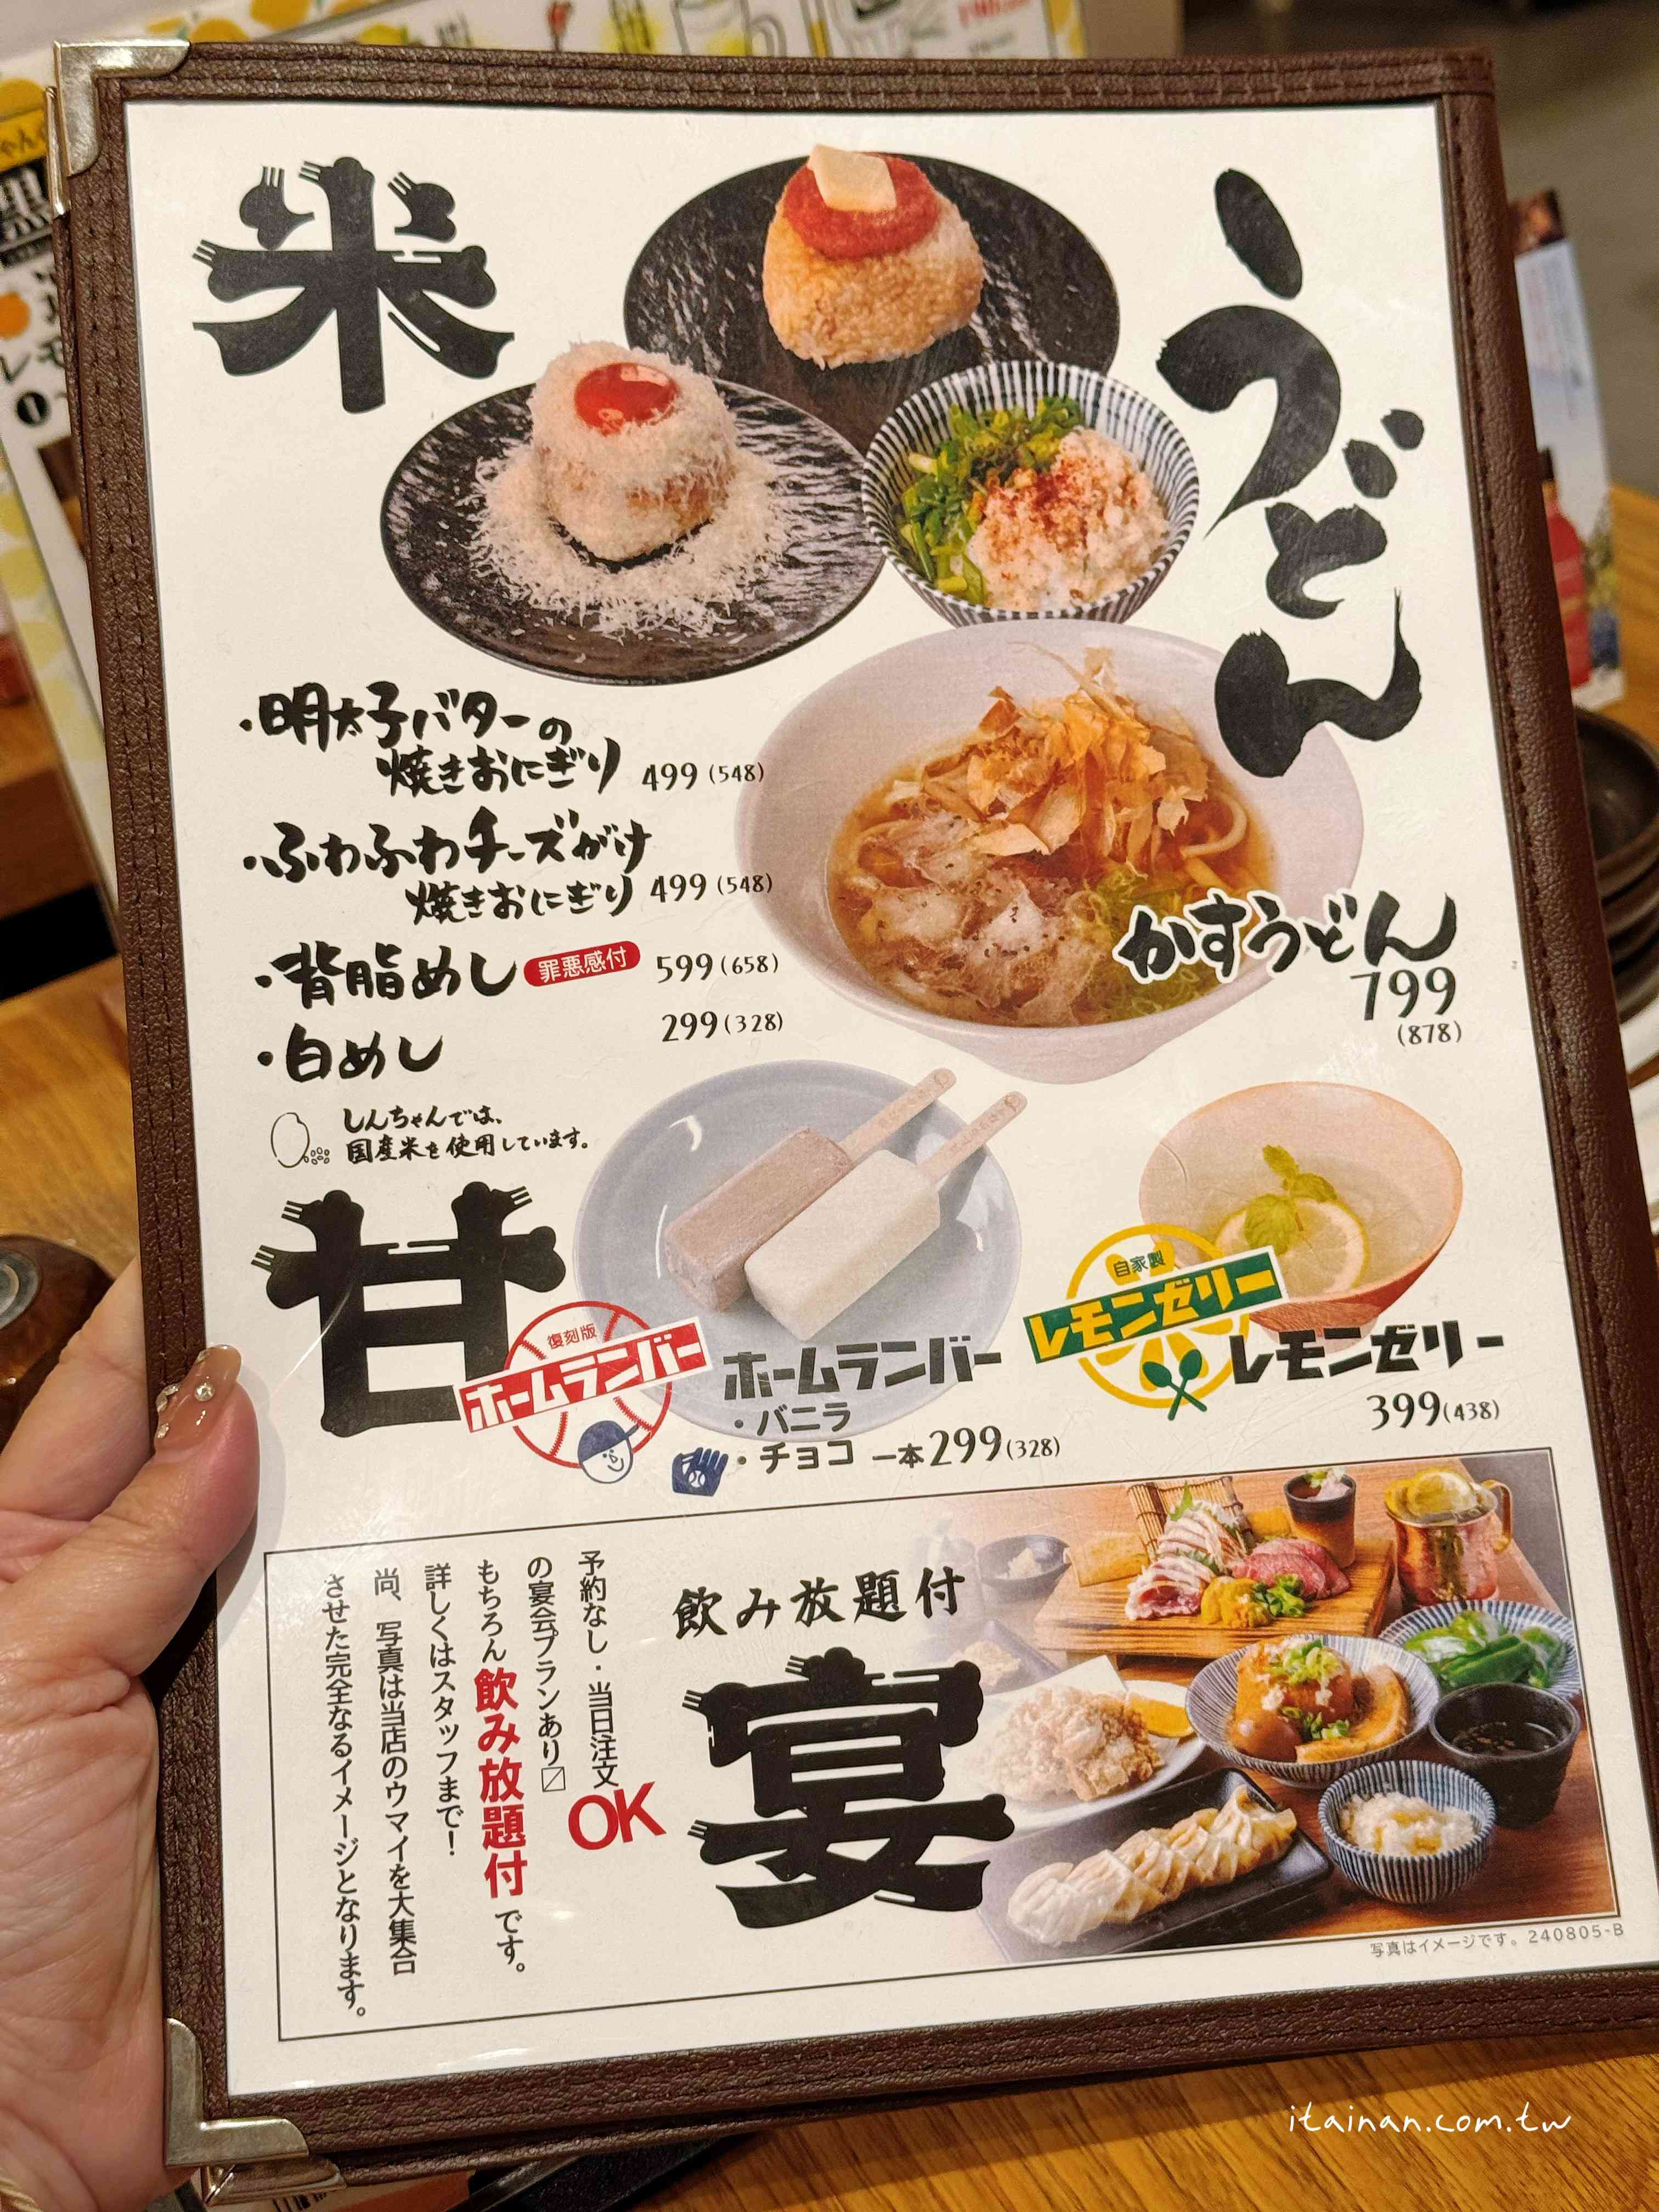 米
うどん
・明太子バターの
焼きおにぎり 499(548)
・ふわふわチーズがけ
焼きおにぎり 499(548)
・背脂めし 罪悪感付 599(658)
・白めし 299(328)
しんちゃんでは、
国産米を使用しています。
かすうどん
799
(878)
甘
復刻版
ホームランバー
ホームランバー
・バニラ
・チョコ 一本299(328)
自家製
レモンゼリー
レモンゼリー
399(438)
飲み放題付
宴
予約なし・当日注文OK
の宴会プランあり〼
もちろん飲み放題付です。
詳しくはスタッフまで！
尚、写真は当店のウマイを大集合
させた完全なるイメージとなります。
写真はイメージです。240805-B
itainan.com.tw